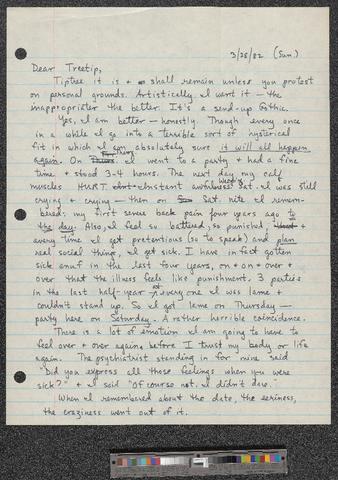 3/28/82 (Sun.)
Dear Treetip,
Tiptree it is + shall remain unless you protest
on personal grounds. Artistically I want it — the
inappropriater the better. It's a send-up Gothic.
Yes, I am better — honestly. Though every once
in a while I go into a terrible sort of hysterical
fit in which I am absolutely sure it will all happen
again. On Thurs. I went to a party + had a fine
time + stood 3-4 hours. The next day my calf
muscles HURT. Instant awfulness. Sat. I was still
crying + crying — then on Sat. nite I remem-
bered: my first severe back pain four years ago to
the day. Also, I feel so battered, so punished,
every time I get pretentious (so to speak) and plan
real social things, I get sick. I have in fact gotten
sick enuf in the last four years, on + on + over +
over that the illness feels like punishment. 3 parties
in the last half-year, at every one I was lame +
couldn't stand up. So I get lame on Thursday —
party here on Saturday. A rather horrible coincidence.
There is a lot of emotion I am going to have to
feel over + over again before I trust my body or life
again. The psychiatrist standing in for mine said
"Did you express all those feelings when you were
sick?" + I said "Of course not. I didn't dare."
When I remembered about the date, the eeriness,
the craziness went out of it.